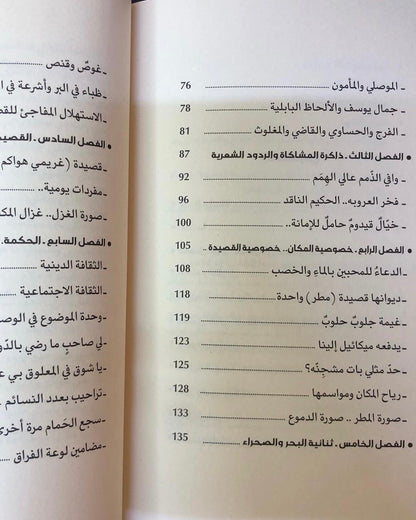 - الموصلي والمأمون 76
- جمال يوسف والألحاظ البابلية 78
- الفرج والحساوي والقاضي والمغلوث 81
• الفصل الثالث. ذاكرة المشاكاة والردود الشعرية 87
- وافي الذّمم عالي الهِمَم 92
- فخر العروبه.. الحكيم الناقد 96
- خيّالٌ قيدومٌ حاملٌ للإمانة.. 100
• الفصل الرابع. خصوصية المكان.. خصوصية القصيدة .. 105
- الدعاءُ للمحبين بالماءِ والخصب 108
- ديوانها قصيدة (مطر) واحدة 118
- غيمة جلوبٌ حلوبٌ 119
- يدفعه ميكائيل إلينا 123
- حدّ مثلي بات مشجِنّه؟ 125
- رياح المكان ومواسمها 128
- صورة المطر .. صورة الدموع 133
• الفصل الخامس. ثنائية البحر والصحراء 135
- غوصٌ وقنص
- ظباء في البر وأشرعة في ا
- الاستهلال المفاجئ للقص
• الفصل السادس. القصيد
- قصيدة (غريمي هواكم
- مفردات يومية..
- صورة الغزل.. غزال المك
• الفصل السابع. الحكمة.
- الثقافة الدينية
- الثقافة الاجتماعية
- وحدة الموضوع في الوص
- لي صاحبٍ ما رضي بالدّو
- يا شوق في المعلوق بي ع
- تراحيب بعدد النسائم
- سجع الحَمام مرة أخرى
- مضامين لوعة الفراق